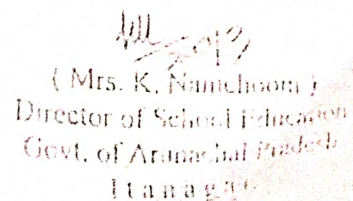 ( Mrs. K. Namchoom )
Director of School Education
Govt. of Arunachal Pradesh
Itanagar